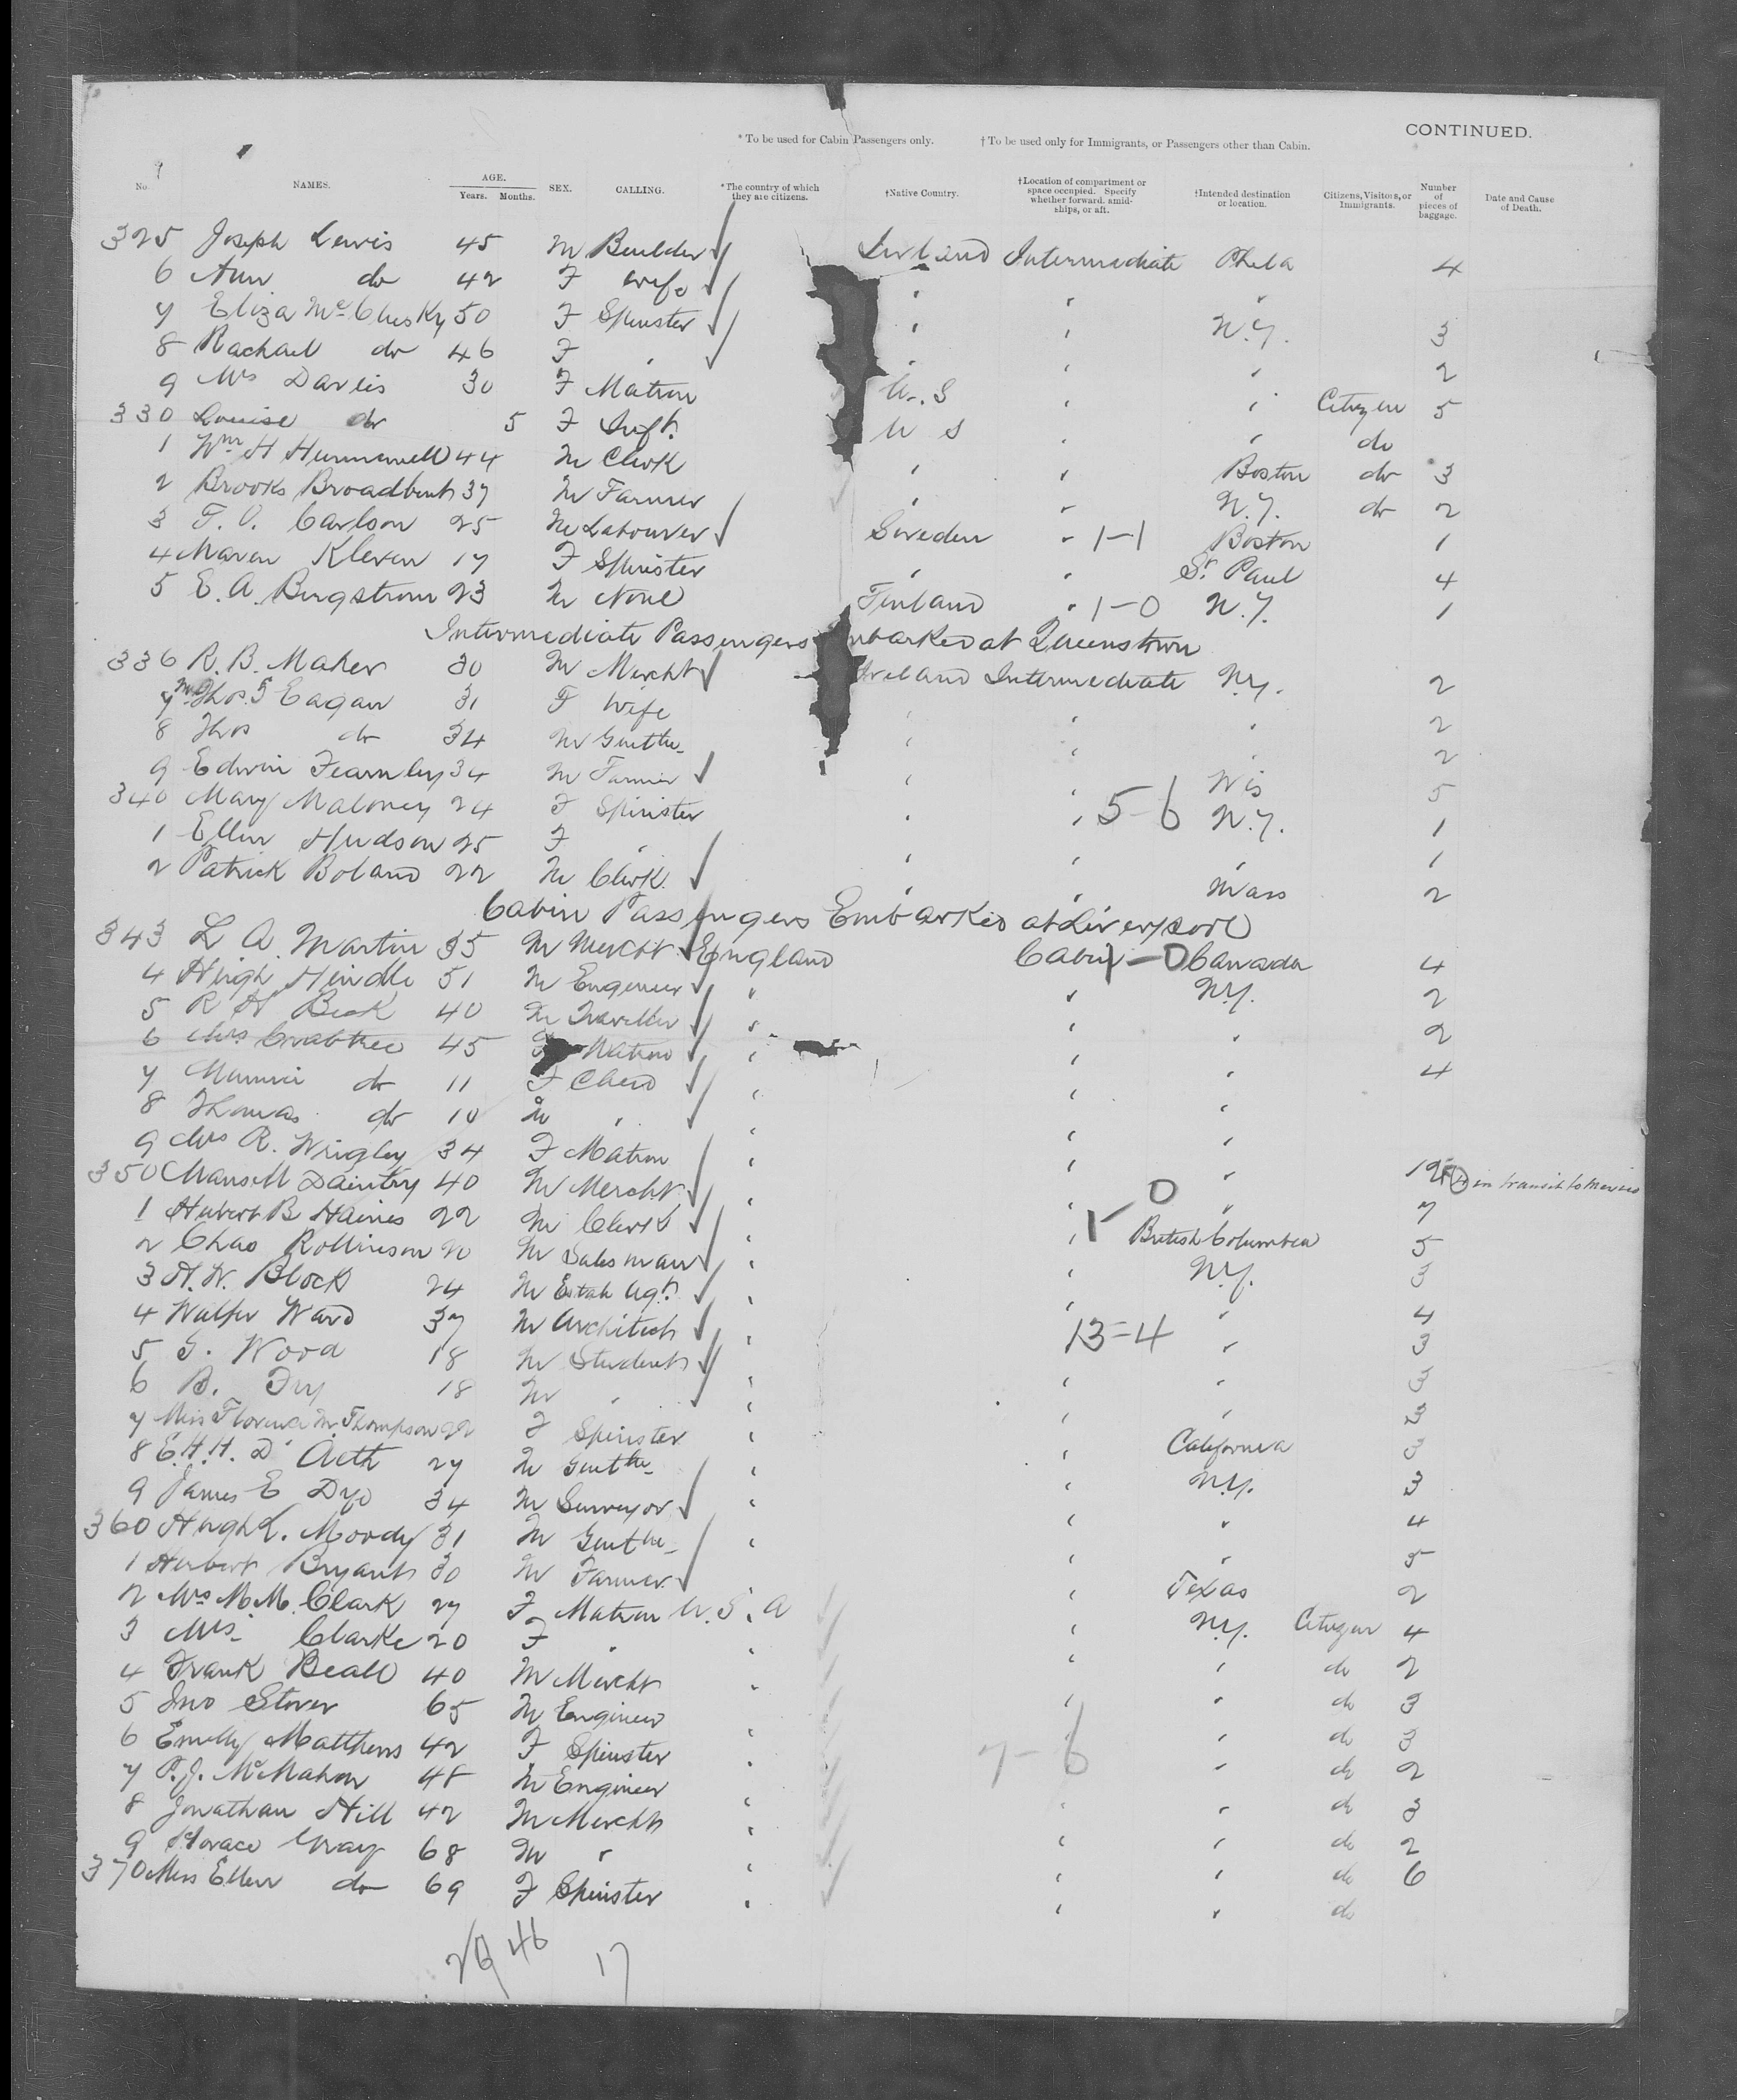 CONTINUED.
* To be used for Cabin Passengers only. † To be used only for Immigrants, or Passengers other than Cabin.
No. NAMES. AGE. Years. Months. SEX. CALLING. *The country of which they are citizens. †Native Country. †Location of compartment or space occupied. Specify whether forward, amidships, or aft. †Intended destination or location. Citizens, Visitors, or Immigrants. Number of pieces of baggage. Date and Cause of Death.
325 Joseph Lewis 45 M Builder Intermediate Phila 4
6 Ann do 42 F Wife " " "
7 Eliza McClusky 50 F Spinster " " N.Y. 3
8 Rachael do 46 F " " " " 2
9 Mrs Davies 30 F Matron U.S " " Citizen 5
330 Louise do 5 F Inft. U S " " do
1 Wm H Hunnewell 44 M Clerk " " Boston do 3
2 Brooks Broadbent 37 M Farmer " " N.Y. do 2
3 F. O. Carlson 25 M Labourer Sweden " 1-1 Boston 1
4 Maren Kleven 17 F Spinster " " St. Paul 4
5 E. A. Bergstrom 23 M None Finland " 1-0 N.Y. 1
Intermediate Passengers Embarked at Queenstown
336 R. B. Maher 30 M Mercht Ireland Intermediate N.Y. 2
7 Mrs Thos. F Eagan 31 F Wife " " " 2
8 Thos do 34 M Gentlen " " " 2
9 Edwin Fearnley 34 M Farmer " " Wis 5
340 Mary Maloney 24 F Spinster " " 5-6 N.Y. 1
1 Ellen Hudson 25 F " " " " 1
2 Patrick Boland 22 M Clerk " " Mass 2
Cabin Passengers Embarked at Liverpool
343 L A. Martin 35 M Mercht England Cabin 1-0 Canada 4
4 Hugh Hindle 51 M Engineer " " N.Y. 2
5 R H Beck 40 M Traveller " " " 2
6 Mrs Crabtree 45 F Matron " " " 4
7 Minnie do 11 F Child " " "
8 Thomas do 10 M " " " "
9 Mrs R. Wrigley 34 F Matron " " " 12 in transit to Mexico
350 Mansell Daintry 40 M Mercht " " " 7
1 Hubert B Haines 22 M Clerk " " 1-0 British Columbia 5
2 Chas Rollinson 20 M Salesman " " N.Y. 3
3 H. W. Block 24 M Estate Agt. " " " 4
4 Walter Ward 37 M Architect " 13=4 " 3
5 G. Wood 18 M Student " " " 3
6 B. Fry 18 M " " " " 3
7 Miss Florence M. Thompson 22 F Spinster " " California 3
8 E. H. H. D' Aeth 27 M Gentlen " " N.Y. 3
9 James E Dye 34 M Surveyor " " " 4
360 Hugh L. Moody 31 M Gentlen " " " 5
1 Herbert Bryant 30 M Farmer " Texas 2
2 Mrs M M. Clark 27 F Matron U.S.A " N.Y. Citizen 4
3 Mrs Clarke 20 F " " " " do 2
4 Frank Beall 40 M Mercht " " " do 3
5 Jno Stover 65 M Engineer " " " do 3
6 Emily Matthews 42 F Spinster " 7-6 " do 2
7 P. J. McMahon 48 M Engineer " " " do 3
8 Jonathan Hill 42 M Mercht " " " do 2
9 Horace Gray 68 M " " " " do 6
370 Miss Ellen do 69 F Spinster " " " do
29 46 17